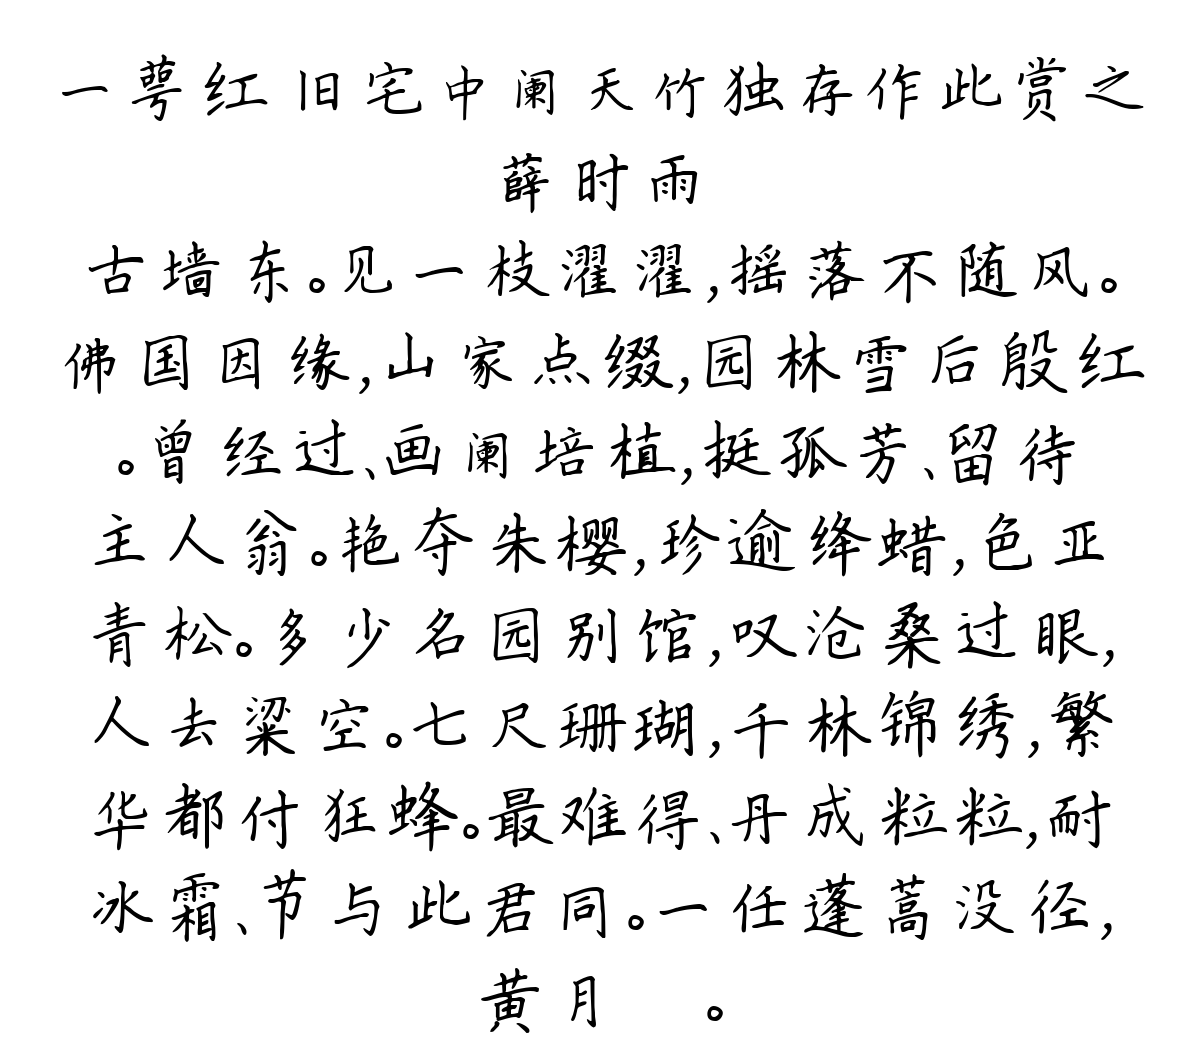 一萼红旧宅中阑天竹独存作此赏之
薛时雨
古墙东。见一枝濯濯,摇落不随风。
佛国因缘,山家点缀,园林雪后殷红
。曾经过、画阑培植,挺孤芳、留待
主人翁。艳夺朱樱,珍逾绛蜡,色亚
青松。多少名园别馆,叹沧桑过眼,
人去粱空。七尺珊瑚,千林锦绣,繁
华都付狂蜂。最难得、丹成粒粒,耐
冰霜、节与此君同。一任蓬蒿没径,
黄月 。